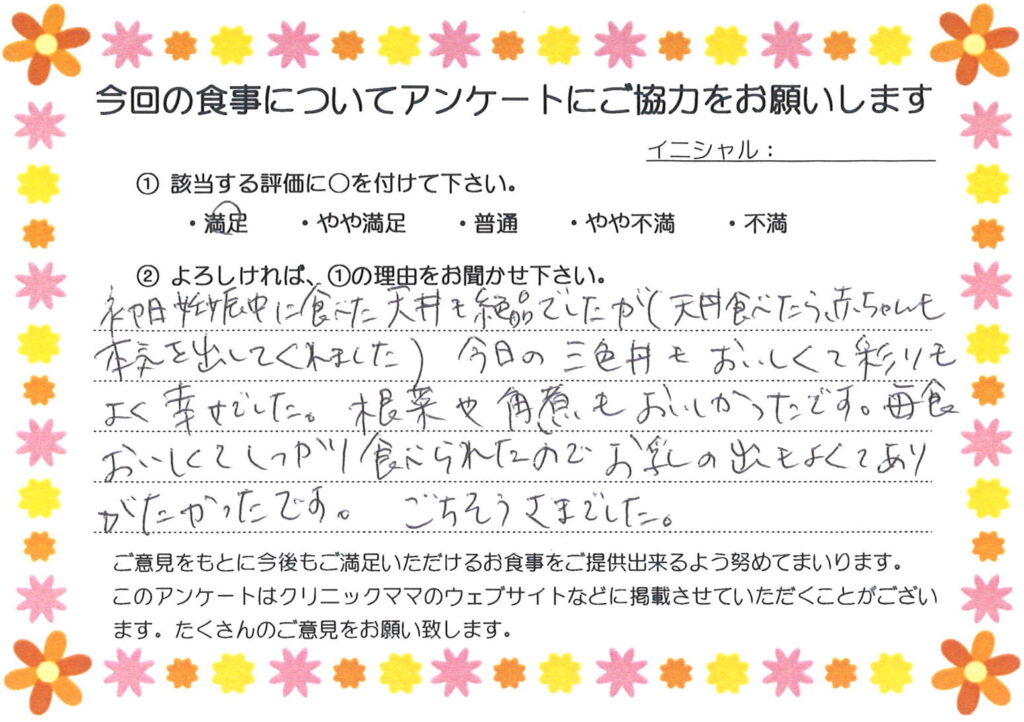 今回の食事についてアンケートにご協力をお願いします
イニシャル：
① 該当する評価に〇を付けて下さい。
・満足 ・やや満足 ・普通 ・やや不満 ・不満
② よろしければ、①の理由をお聞かせ下さい。
初日妊娠中に食べた天丼も絶品でしたが(天丼食べたら、赤ちゃんも
本気を出してくれました) 今日の三色丼もおいしくて彩りも
よく幸せでした。根菜や角煮もおいしかったです。毎食
おいしくてしっかり食べられたのでお乳の出もよくてあり
がたかったです。 ごちそうさまでした。
ご意見をもとに今後もご満足いただけるお食事をご提供出来るよう努めてまいります。
このアンケートはクリニックママのウェブサイトなどに掲載させていただくことがござい
ます。たくさんのご意見をお願い致します。